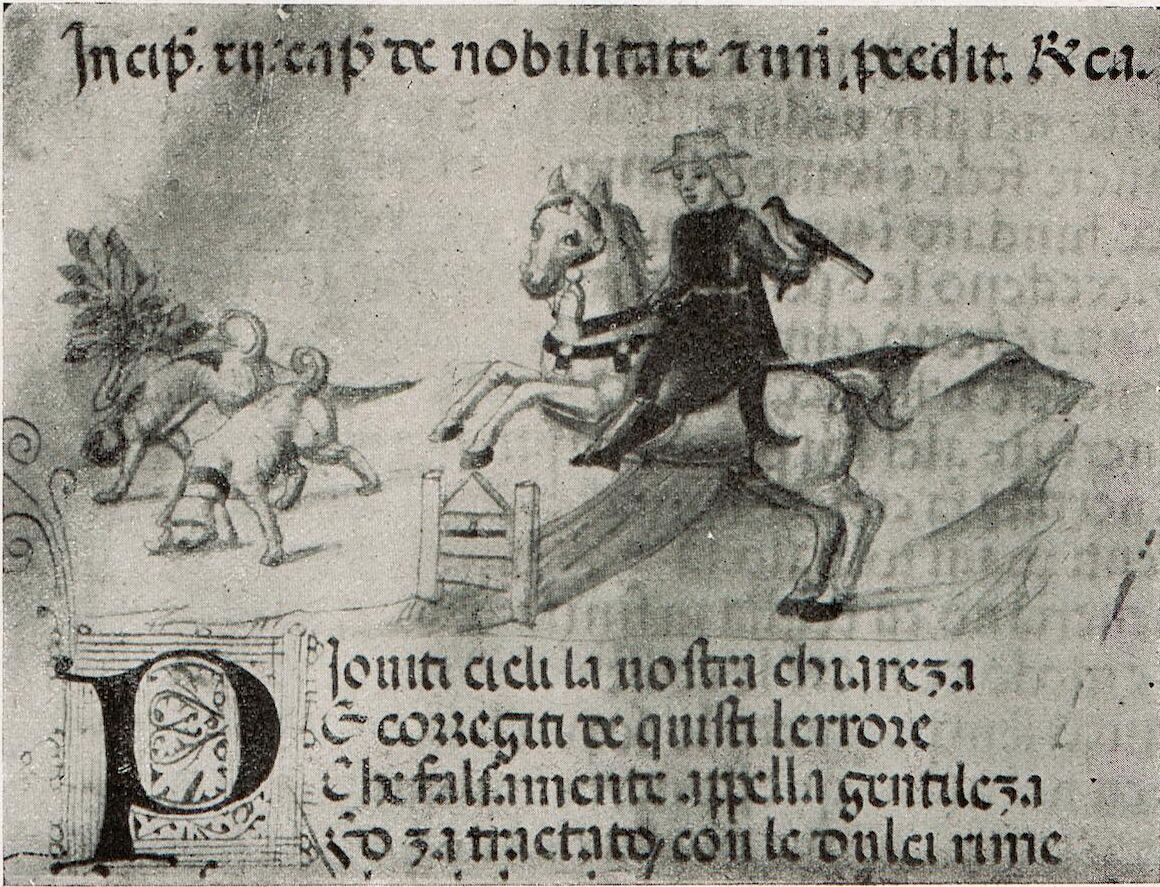 Incip̄. xij: cap̄ de nobilitate ⁊
Piouiti cieli la nostra chiareza
E corregiti de quisti lerrore
Che falsamente appella gentileza
za tractato con le dulci rime